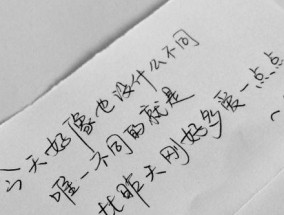 今天好像也没什么不同
唯一不同的就是
比昨天刚好多爱一点点